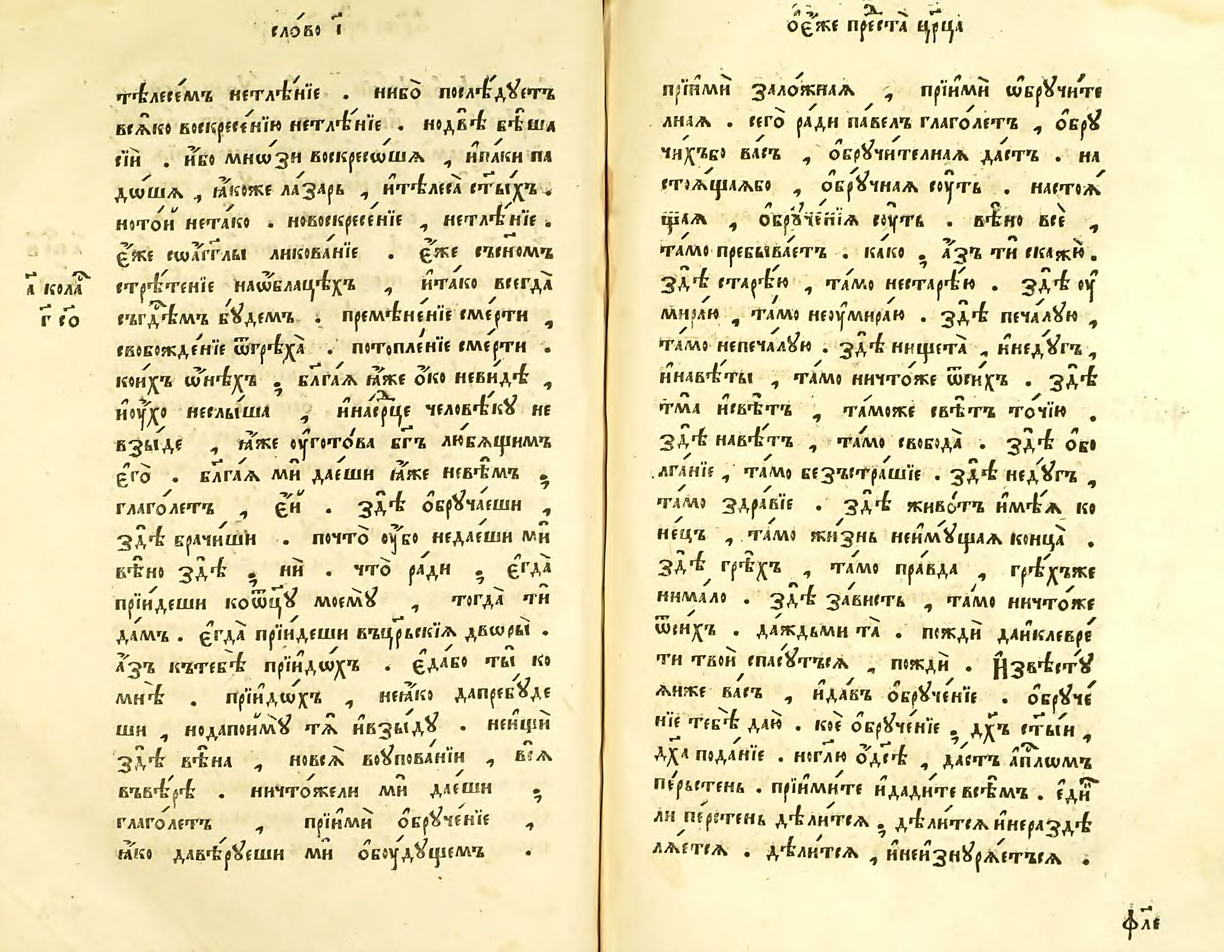 сло́во і҃
тѣлесе́мъ нетлѣ́нїе . нибо̀ послѣ́дуетъ
вся́ко воскресе́нїю нетлѣ́нїе . нодвѣ̀ бѣ́ша
сїѝ . и҆́бо мно́ѕи воскресо́шѧ , и҆па́ки па
до́шѧ , ꙗ҆́коже ла́зарь , и҆тѣлеса̀ ст҃ы́хъ .
ното́й нета́ко . новоскресе́нїе , нетлѣ́нїе .
є҆́же соа҆́гг҃лы ликова́нїе . є҆́же съсн҃омъ
стрѣ́тенїе наѡ҆́блацѣхъ , и҆та́ко всегда̀
съгдⷭ҇емъ бꙋ́демъ . премѣне́нїе сме́рти ,
свобожде́нїе ѿгрѣха̀ . потопле́нїе сме́рти .
кои́хъ ѡ҆нѣ́хъ ; бл҃га́ѧ ꙗ҆́же ѻ҆́ко неви́дѣ ,
и҆оу҆́хо неслы́ша , и҆насрⷣце человѣ́кꙋ не
взы́де , ꙗ҆́же оу҆гото́ва бг҃ъ лю́бѧщимъ
є҆го̀ . бл҃га́ѧ мѝ дае́ши ꙗ҆́же невѣ́мъ ;
глаго́летъ , є҆́й . здѣ̀ ѻ҆брꙋча́еши ,
здѣ̀ врачи́ши . почто̀ оу҆́бо недае́ши мѝ
вѣ́но здѣ̀ ; нѝ . что̀ ра́ди ; є҆гда̀
прїи́деши коѿцꙋ̀ моемꙋ̀ , тогда̀ тѝ
да́мъ . є҆гда̀ прїи́деши въцрⷭ҇ьскїѧ дворы̀ .
а҆́зъ кътебѣ̀ прїидо́хъ . є҆да́бо ты̀ ко
мнѣ̀ . прїидо́хъ , неꙗ҆́ко дапребꙋ́де
ши , нодапоимꙋ̀ тѧ̀ и҆взы́дꙋ . неищѝ
здѣ̀ вѣ́на , новсѧ̀ воупова́нїи , всѧ̀
въвѣ́рѣ . ничто́жели мѝ дае́ши ;
глаго́летъ , прїимѝ ѻ҆брꙋче́нїе ,
ꙗ҆́ко давѣ́рꙋеши мѝ ѻ҆бꙋ́дꙋщемъ .
а҃ кола
г҃ со
ѻ҆є҆́же преста̀ црⷣца
прїимѝ зало́жнаѧ , прїимѝ ѡ҆брꙋчи́те
лнаѧ . сего̀ ра́ди па́велъ глаго́летъ , ѻ҆брꙋ
чи́хъбо ва́съ , ѻ҆брꙋчи́телнаѧ да́стъ . на
стоѧ́щаѧбо , ѻ҆брꙋ́чнаѧ сꙋ́ть . настоѧ́
щаѧ , ѻ҆брꙋче́нїѧ сꙋ́ть . вѣ́но всѐ ,
та́мо пребыва́етъ . ка́ко ; а҆́зъ тѝ скажꙋ̀ .
здѣ̀ старѣ́ю , та́мо нестарѣ́ю . здѣ̀ оу҆
мира́ю , та́мо неоу҆мира́ю . здѣ̀ печа́лꙋю ,
та́мо непеча́лꙋю . здѣ̀ нищета̀ , и҆недꙋ́гъ ,
и҆навѣ́ты , та́мо ничто́же ѿси́хъ . здѣ̀
тма̀ и҆свѣ́тъ , та́може свѣ́тъ то́чїю .
здѣ̀ навѣ́тъ , та́мо свобода̀ . здѣ̀ ѻ҆бо
лга́нїе , та́мо безъстра́шїе . здѣ̀ недꙋ́гъ ,
та́мо здра́вїе . здѣ̀ живо́тъ и҆мѣ́ѧ ко
не́цъ , та́мо жи́знь неимꙋ́щаѧ конца̀ .
здѣ̀ грѣ́хъ , та́мо пра́вда , грѣ́хъже
нима́ло . здѣ̀ за́висть , та́мо ничто́же
ѿси́хъ . да́ждьми та̀ . пождѝ даи҆клевре́
ти твоѝ спасꙋ́тъсѧ , пождѝ . И҆звѣ́стꙋ
ѧиже ва́съ , и҆да́въ ѻ҆брꙋче́нїе . ѻ҆брꙋче́
нїе тебѣ̀ даю̀ . ко́е ѻ҆брꙋче́нїе ; дх҃ъ ст҃ы́и ,
дх҃а пода́нїе . ноглю̀ ѻ҆́дсѣ , да́стъ а҆пⷭ҇лѡмъ
пе́рьстень . прїими́те и҆дади́те всѣ́мъ . є҆ди́
ли пе́рстень дѣ́литсѧ ; дѣ́литсѧ и҆нераздѣ
лѧ́етсѧ . дѣ́литсѧ , и҆неизнꙋрѧ́етъсѧ .
фл҃е